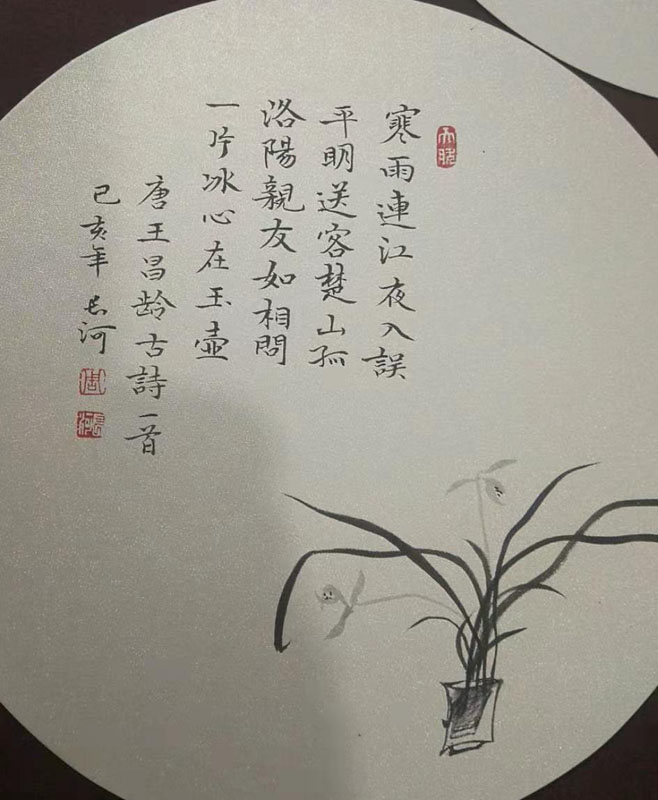 寒雨連江夜入誤
平明送客楚山孤
洛陽親友如相問
一片冰心在玉壺
唐王昌龄古詩一首
己亥年 长河
周
長河